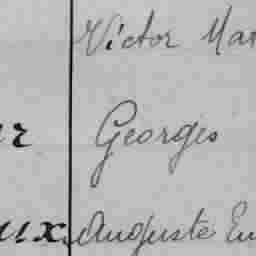 Victor Mar
Georges
ux Auguste Eu